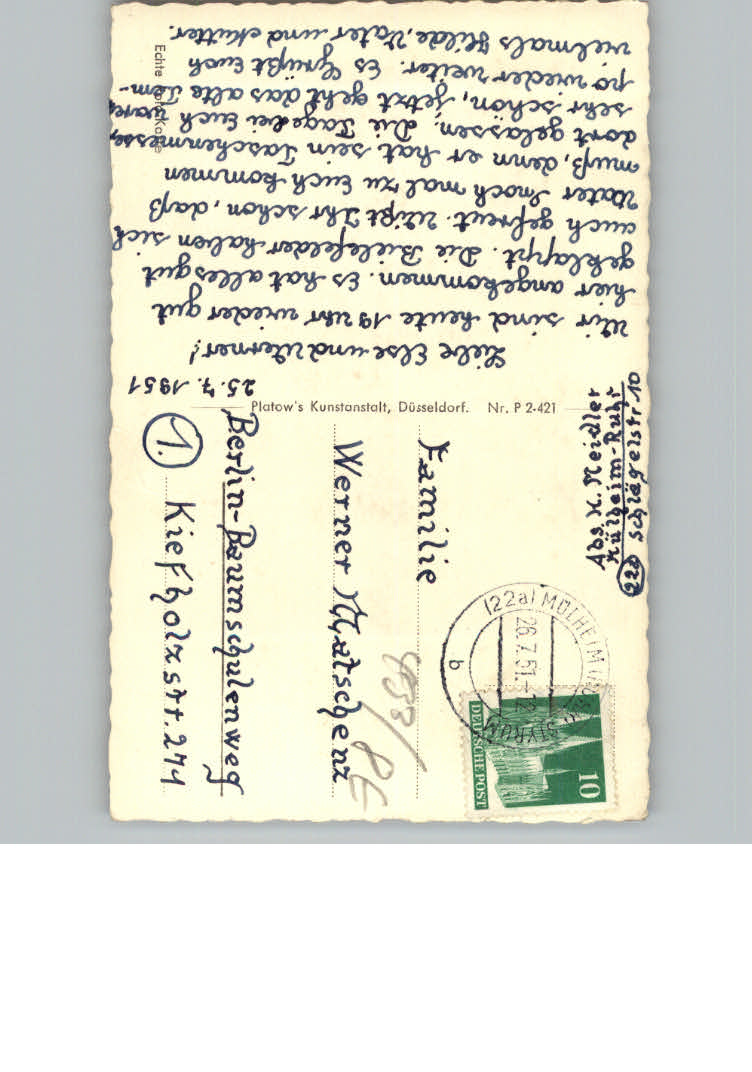 25.7.1951
Liebe Else und Werner!
Wir sind heute 19 Uhr wieder gut
hier angekommen. Es hat alles gut
geklappt. Die Bielefelder haben sich
auch gefreut. Wißt Ihr schon, daß
Vater noch mal zu Euch kommen
muß, denn er hat sein Taschenmesser
dort gelassen. Die Tage bei Euch waren
sehr schön, jetzt geht das alte Tem-
po wieder weiter. Es Grüßt Euch
vielmals Hilde, Vater und Mutter.
Echte Foto-Karte
Platow's Kunstanstalt, Düsseldorf. Nr. P 2-421
Abs. H. Neidler
Mülheim-Ruhr
22a Schlägelstr. 10
(22a) MÜLHEIM
26.7.51.-12
b
10
DEUTSCHE POST
Familie
Werner Matschenz
Berlin-Baumschulenweg
1. Kiefholzstr. 271